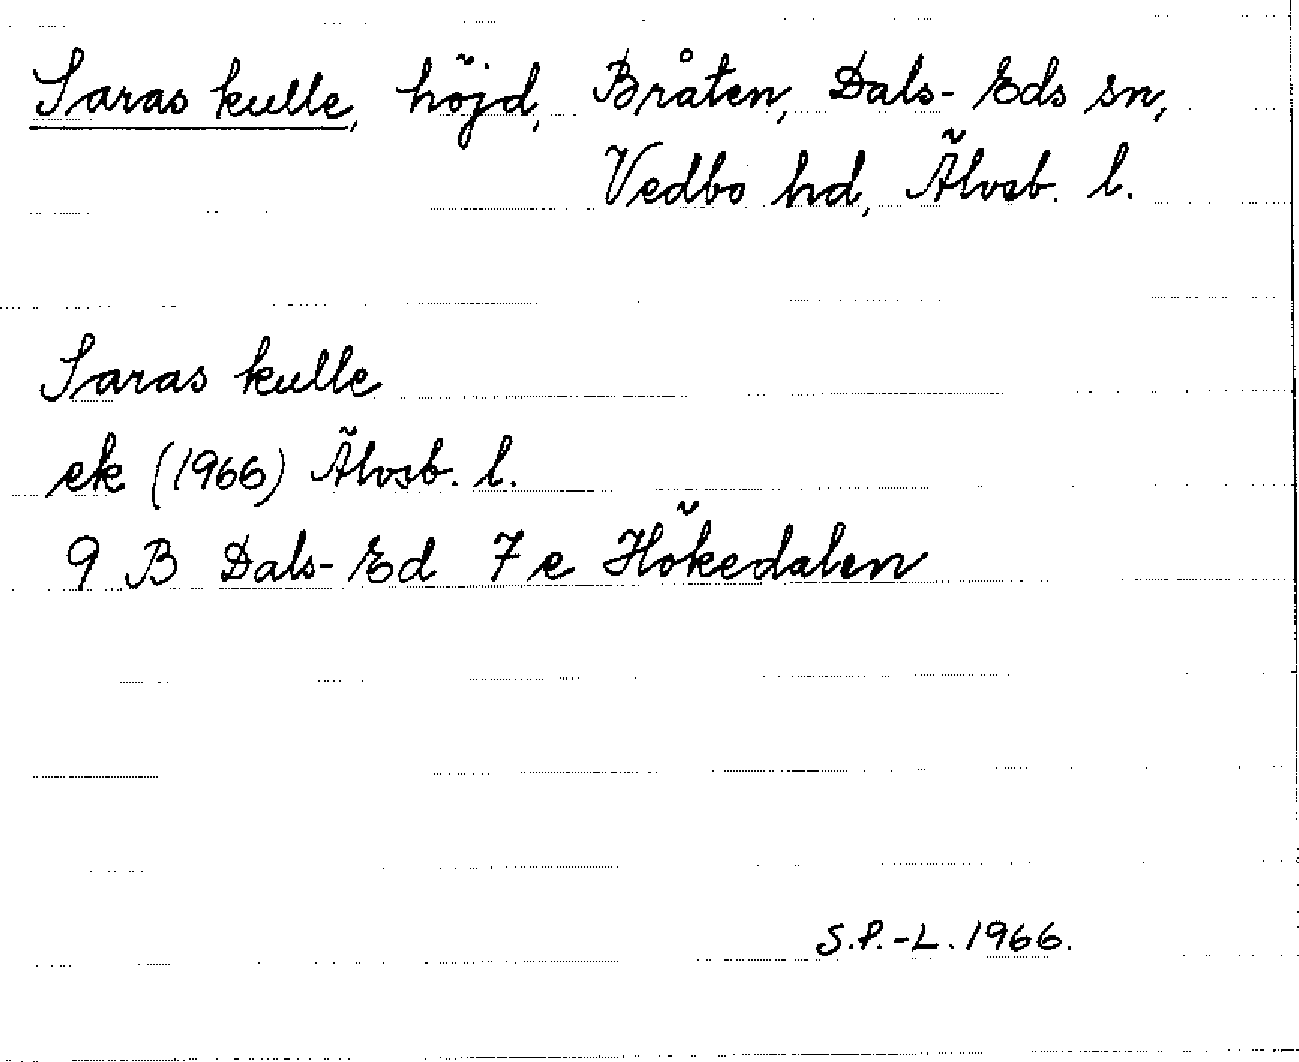 Saras kulle, höjd, Bråten, Dals-Eds sn,
Vedbo hd, Älvsb. l.
Saras kulle
ek (1966) Älvsb. l.
9 B Dals-Ed 7 e Hökedalen
S.P.-L. 1966.